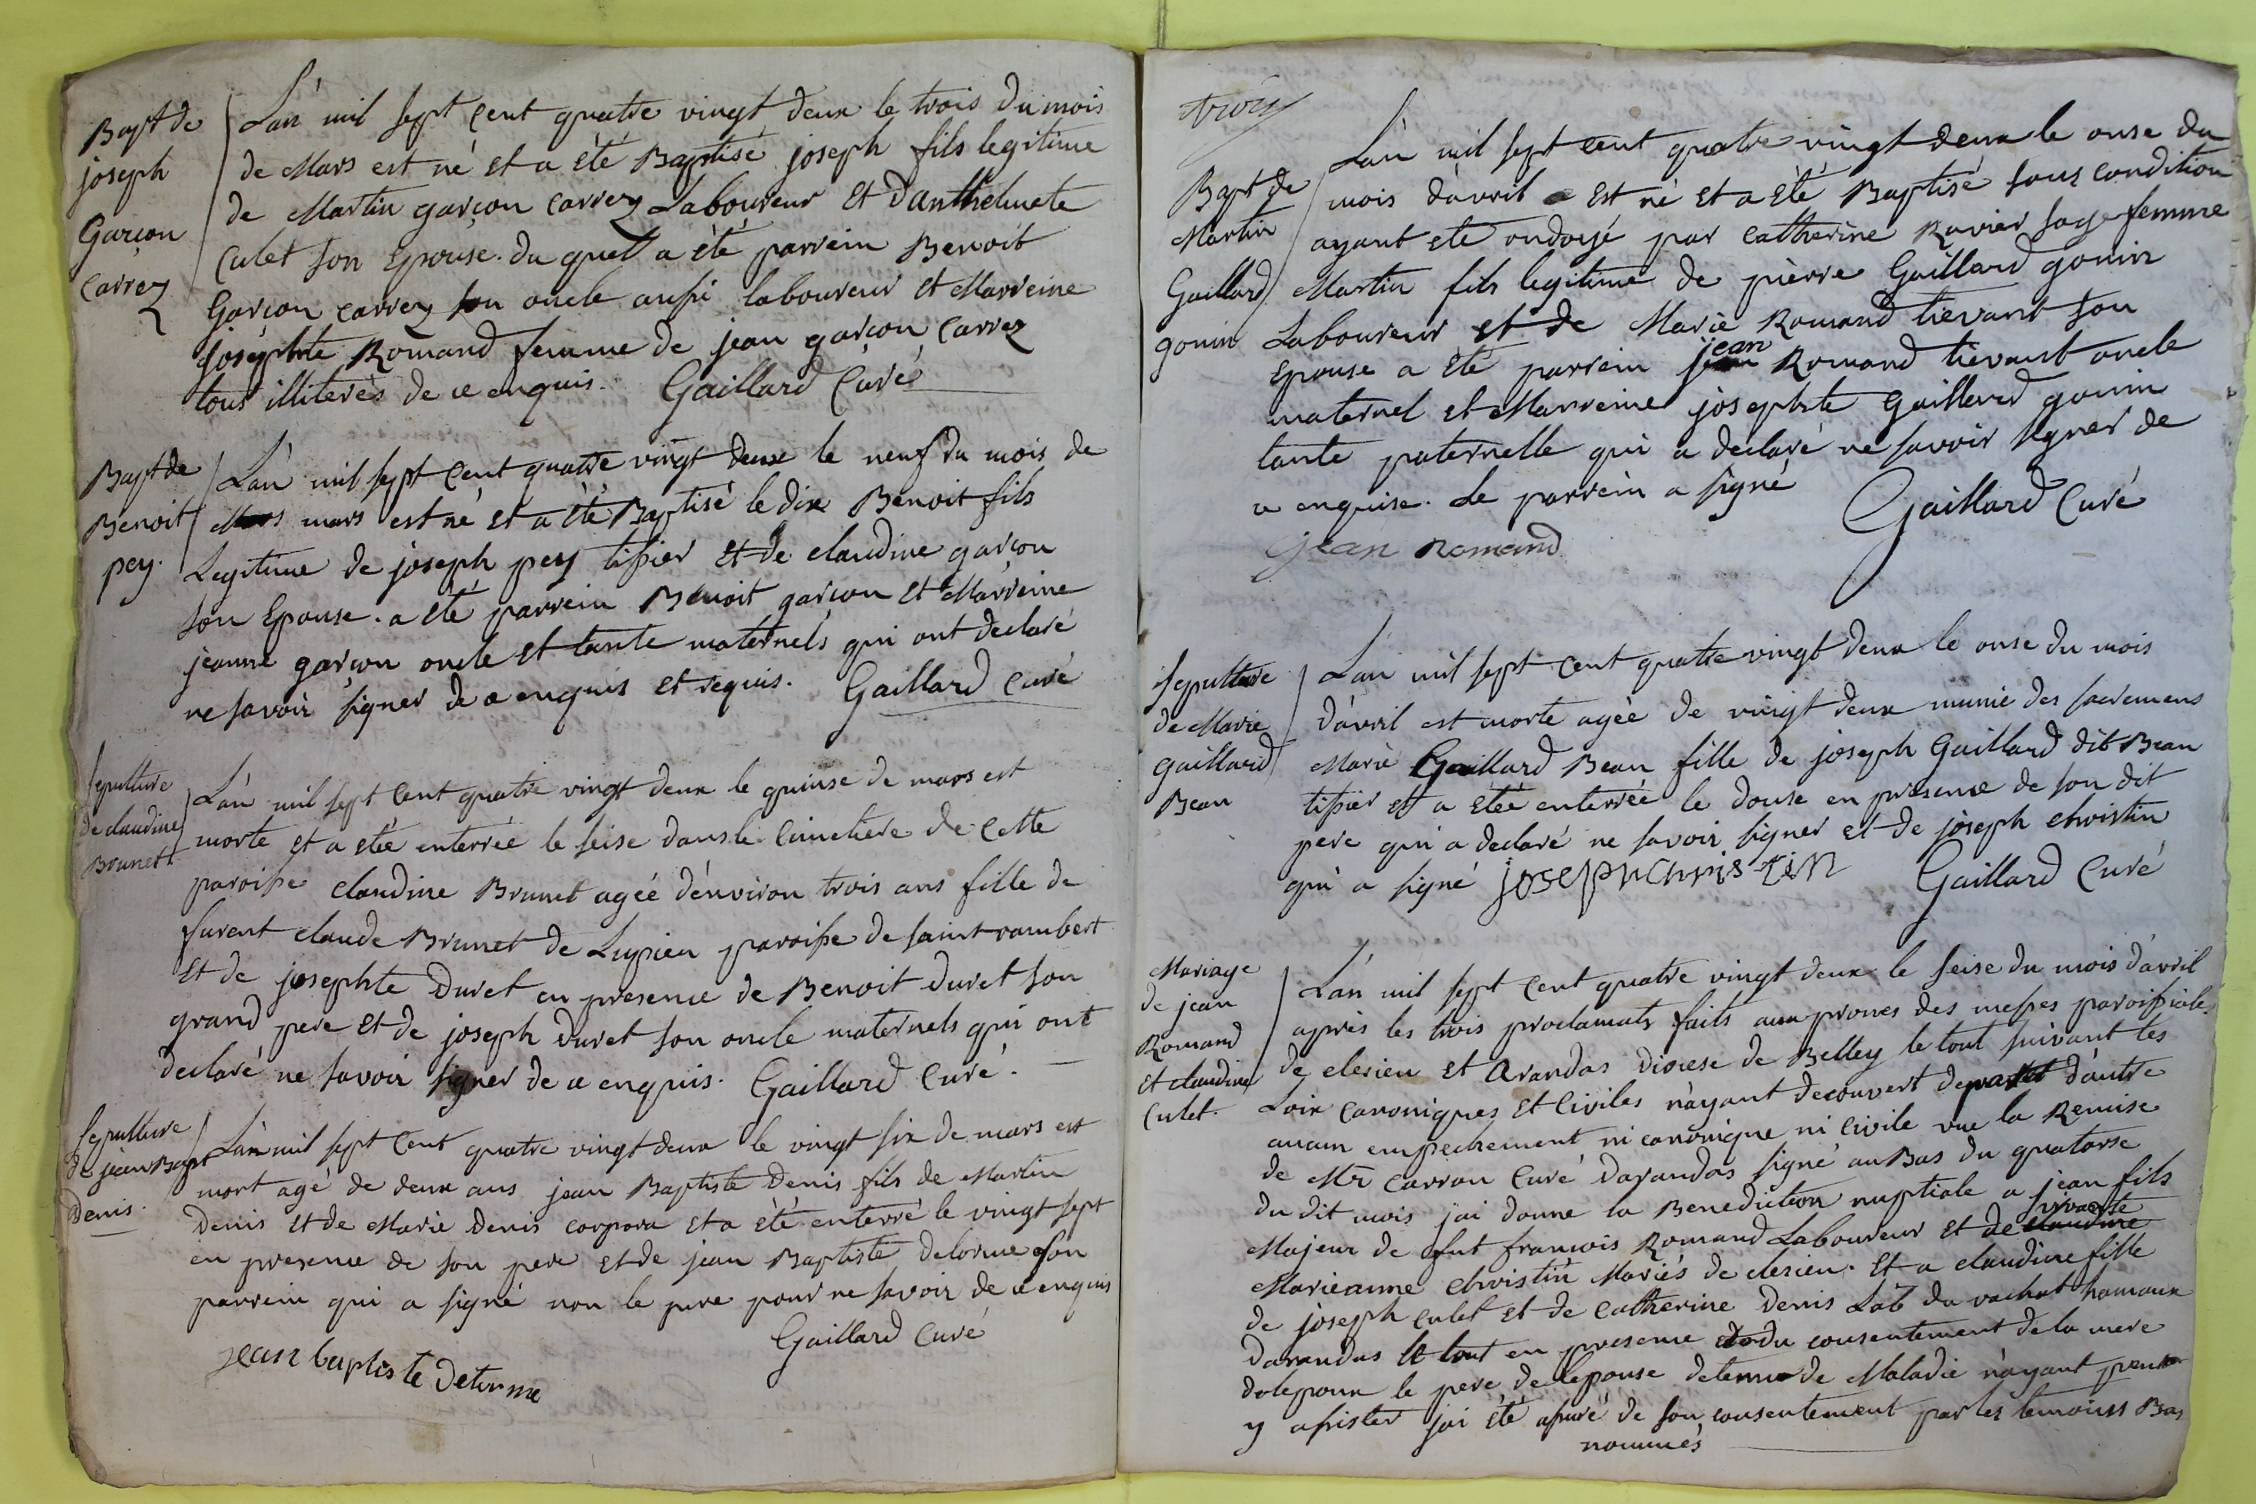 Bapt de
joseph
Garçon
Carrez
L'an mil sept cent quatre vingt deux le trois du mois
de Mars est né et a été Baptisé joseph fils legitime
de Martin garçon carrez Laboureur et d'anthelmete
Culet son Epouse. du quel a été parrein Benoit
Garçon carrez son oncle aussi laboureur et Marreine
joséphte Romand femme de jean garçon carrez
tous illiterés de ce enquis. Gaillard Curé
Bapt de
Benoit
pey.
L'an mil sept cent quatre vingt deux le neuf du mois de
mars est né et a été Baptisé le dix Benoit fils
Legitime de joseph pey tissier et de claudine garçon
son Epouse. a été parrein Benoit garçon et Marreine
jeanne garçon oncle et tante maternels qui ont declaré
ne savoir signer de ce enquis et requis. Gaillard curé
Sepulture
de claudine
Brunet
L'an mil sept cent quatre vingt deux le quinse de mars est
morte et a eté enterrée le seise dans le Cimetiere de cette
paroisse claudine Brunet agée d'environ trois ans fille de
furent claude Brunet de Lupieu paroisse de saint rambert
et de josephte Duret en presence de Benoit duret son
grand pere et de joseph duret son oncle maternels qui ont
declaré ne savoir signer de ce enquis. Gaillard Curé.
Sepulture
de jean Bapt
Denis.
L'an mil sept cent quatre vingt deux le vingt six de mars est
mort agé de deux ans jean Baptiste Denis fils de Martin
Denis et de Marie Denis corpora et a été enterré le vingt sept
en presence de son pere et de jean Baptiste delorme son
parrein qui a signé non le pere pour ne savoir de ce enquis
Gaillard Curé
jean baptiste delorme
trois
Bapt de
Martin
Gaillard
gonin
L'an mil sept cent quatre vingt deux le onse du
mois d'avril est né et a été Baptisé sous condition
ayant eté ondoyé par catherine Ravier sage femme
Martin fils legitime de pierre Gaillard gonin
Laboureur et de Marie Romand tievant son
Epouse a été parrein jean Romand tievant oncle
maternel et Marreine josephte Gaillard gonin
tante paternelle qui a declaré ne savoir signer de
ce enquise. Le parrein a signé Gaillard Curé
jean Romand
Sepulture
de Marie
gaillard
Bean
L'an mil sept cent quatre vingt deux le onse du mois
d'avril est morte agée de vingt deux munie des sacremens
Marie Gaillard Bean fille de joseph Gaillard dit Bean
tissier et a étée enterrée le douse en presence de son dit
pere qui a declaré ne savoir signer et de joseph christin
qui a signé joseph christin Gaillard Curé
Mariage
de jean
Romand
et claudine
Culet.
L'an mil sept cent quatre vingt deux le seise du mois d'avril
après les trois proclamats faits aux prones des messes paroissiales
de clesieu et Arandas Diocese de Belley le tout suivant les
Loix canoniques et Civiles n'ayant decouvert de part et d'autre
aucun empechement ni canonique ni civile vue la Remise
de Mr Carron Curé d'arandas signé au Bas du quatorse
du dit mois jai donne la Benediction nuptiale a jean fils
Majeur de fut francois Romand Laboureur et de vivante
claudine
Marieanne christin Mariés de clesieu. et a claudine fille
de joseph culet et de catherine Denis Lab du vachat hamaux
darandas le tout en presence du consentement de la mere
de lepoux le pere de lepouse detenu de Maladie n'ayant peu
y assister jai été assuré de son consentement par les temoins Bas
nommés